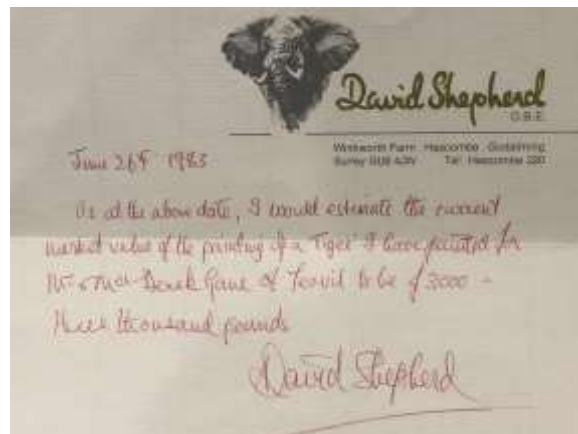 David Shepherd
O.B.E.
Winkworth Farm Hascombe Godalming
Surrey GU8 4JW Tel: Hascombe 220
June 26th 1983
As at the above date, I would estimate the current
market value of the painting of a 'Tiger' I have painted for
Mr & Mrs Derek Gane of Yeovil to be £3000 –
three thousand pounds
David Shepherd